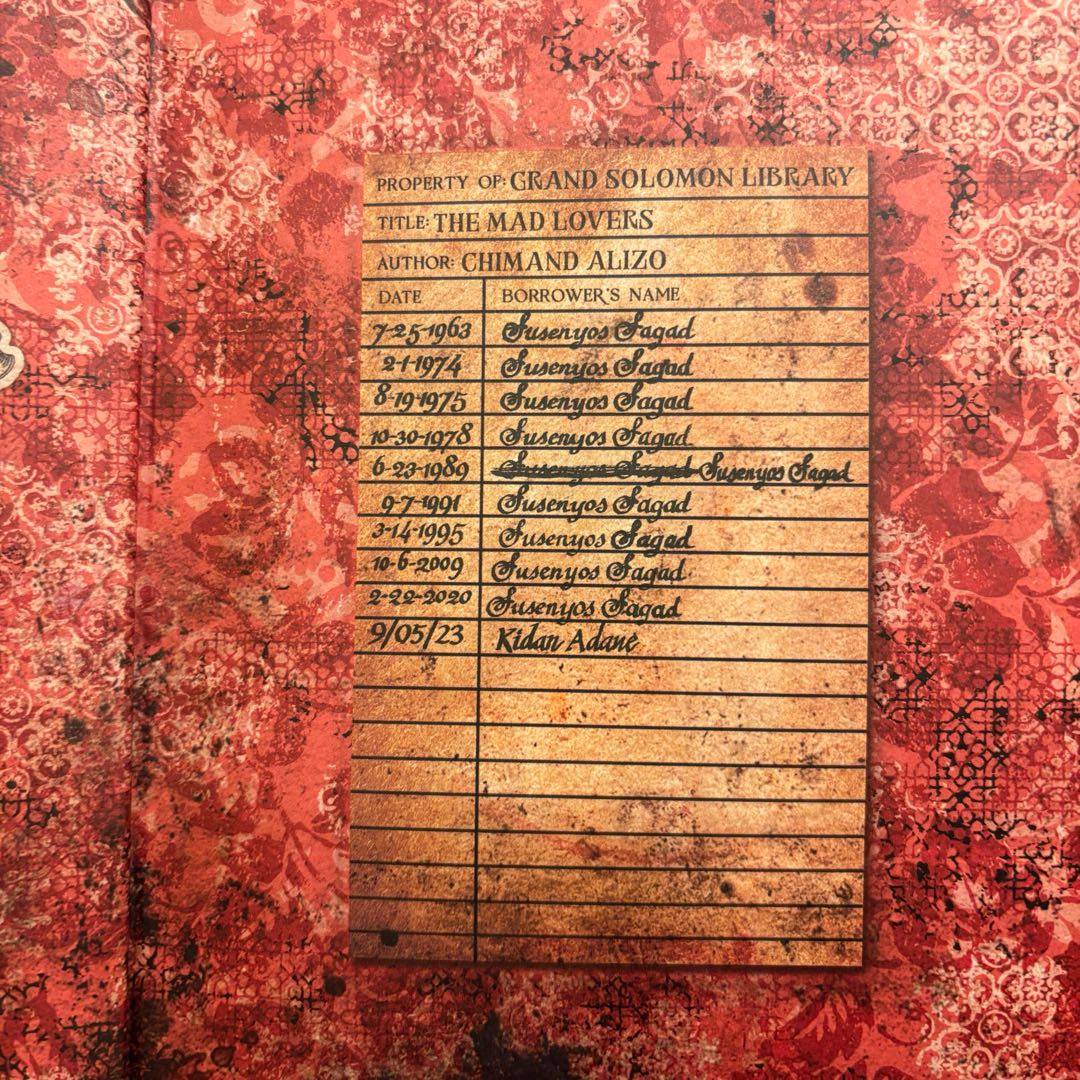 PROPERTY OF: GRAND SOLOMON LIBRARY
TITLE: THE MAD LOVERS
AUTHOR: CHIMAND ALIZO
DATE BORROWER'S NAME
7-25-1963 Susenyos Sagad
2-1-1974 Susenyos Sagad
8-19-1975 Susenyos Sagad
10-30-1978 Susenyos Sagad
6-23-1989 Susenyos Sagad Susenyos Sagad
9-7-1991 Susenyos Sagad
3-14-1995 Susenyos Sagad
10-6-2009 Susenyos Sagad
2-22-2020 Susenyos Sagad
9/05/23 Kidan Adane